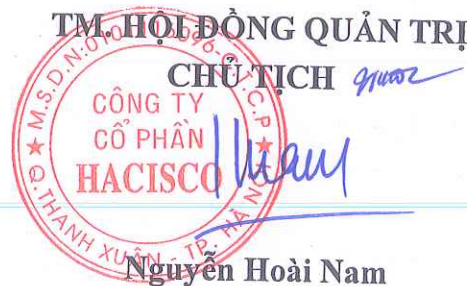 TM. HỘI ĐỒNG QUẢN TRỊ
CHỦ TỊCH
CÔNG TY
CỔ PHẦN
HACISCO
Q.THANH XUÂN - TP. HÀ NỘI
Nguyễn Hoài Nam